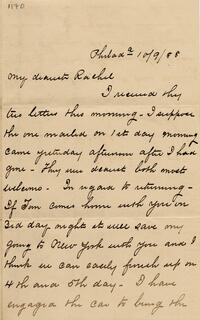 1190
Philada 10/9/88
My dearest Rachel
I received thy
two letters this morning - I suppose
the one mailed on 1st day morning
came yesterday afternoon after I had
gone - They were dearest both most
welcome. In regard to returning -
If Tom comes home with you on
3rd day night it will save my
going to New York with you and I
think we can easily finish up on
4th and 5th day. I have
engaged the car to bring the